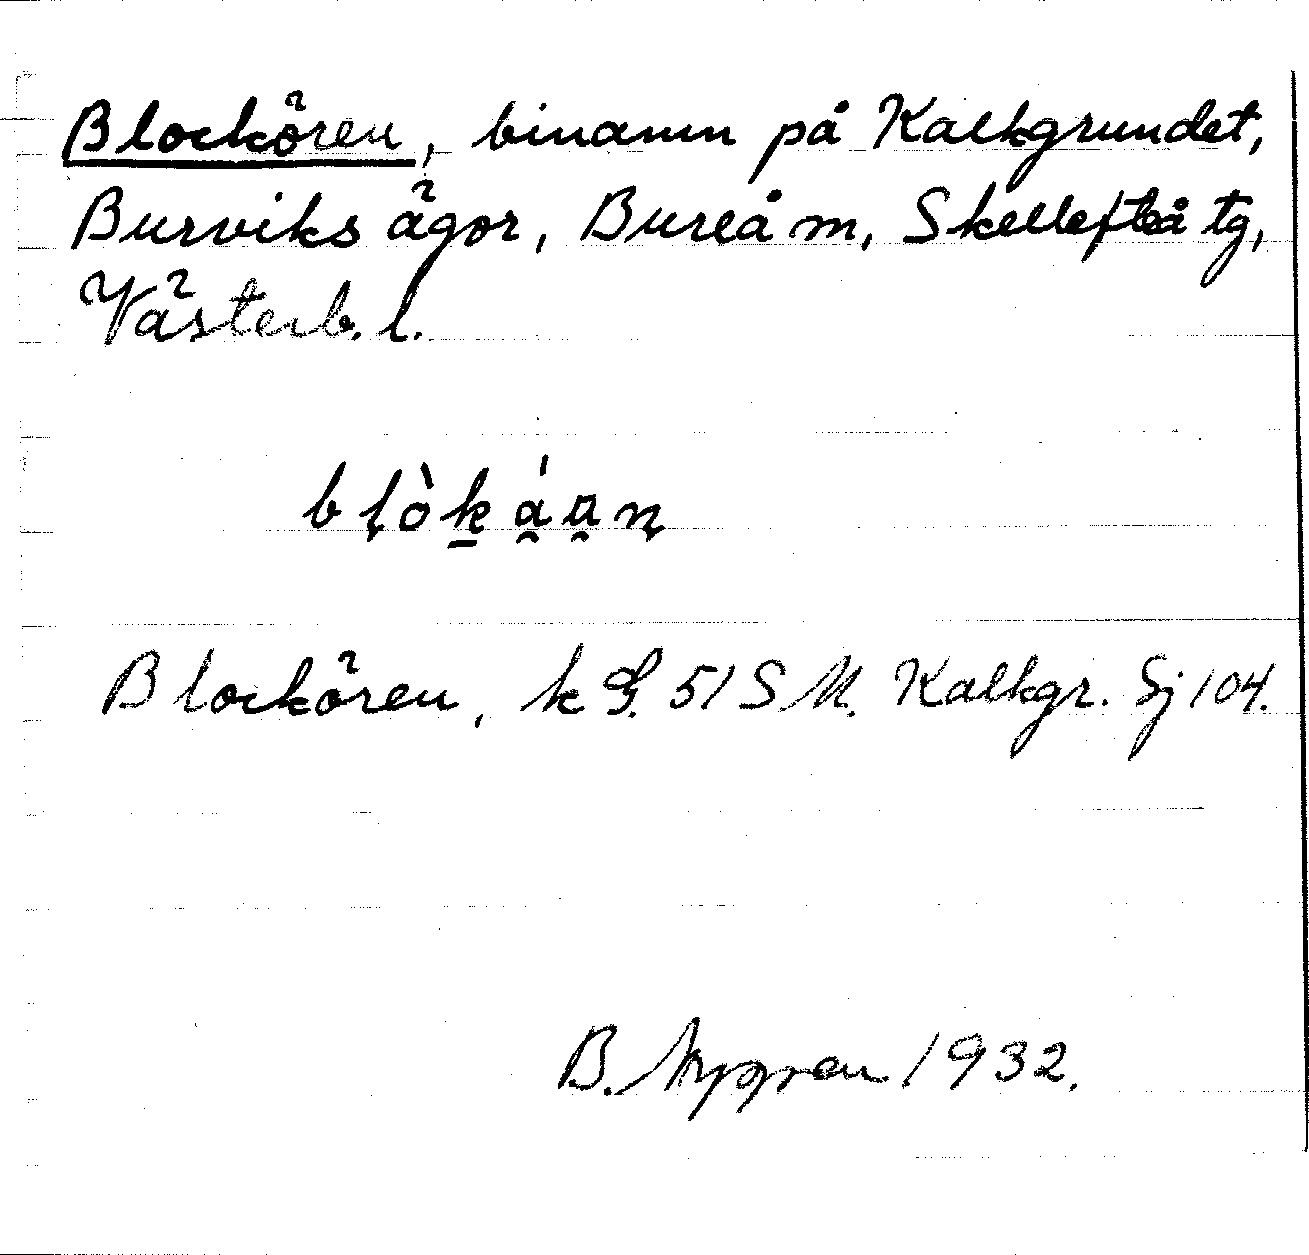 Blockören, binamn på Kalkgrundet,
Burviks ägor, Bureå m, Skellefteå tg,
Västerb. l.
Blockören, k G. 51 S M. Kalkgr. Sj 104.
B. Nygren 1932.